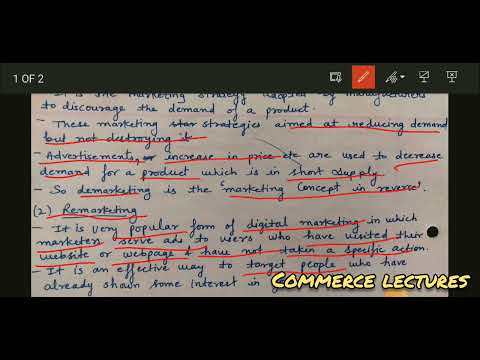 1 OF 2
It is the marketing strategy adopted by manufacturers
to discourage the demand of a product.
- These marketing star strategies aimed at reducing demand
but not destroying it
- Advertisements, or increase in price etc are used to decrease
demand for a product which is in short supply
- So demarketing is the 'marketing concept in reverse'.
(2) Remarketing
- It is very popular form of digital marketing in which
marketers serve ads to users who have visited their
website or webpage & have not taken a specific action.
- It is an effective way to target people who have
already shown some interest in
COMMERCE LECTURES